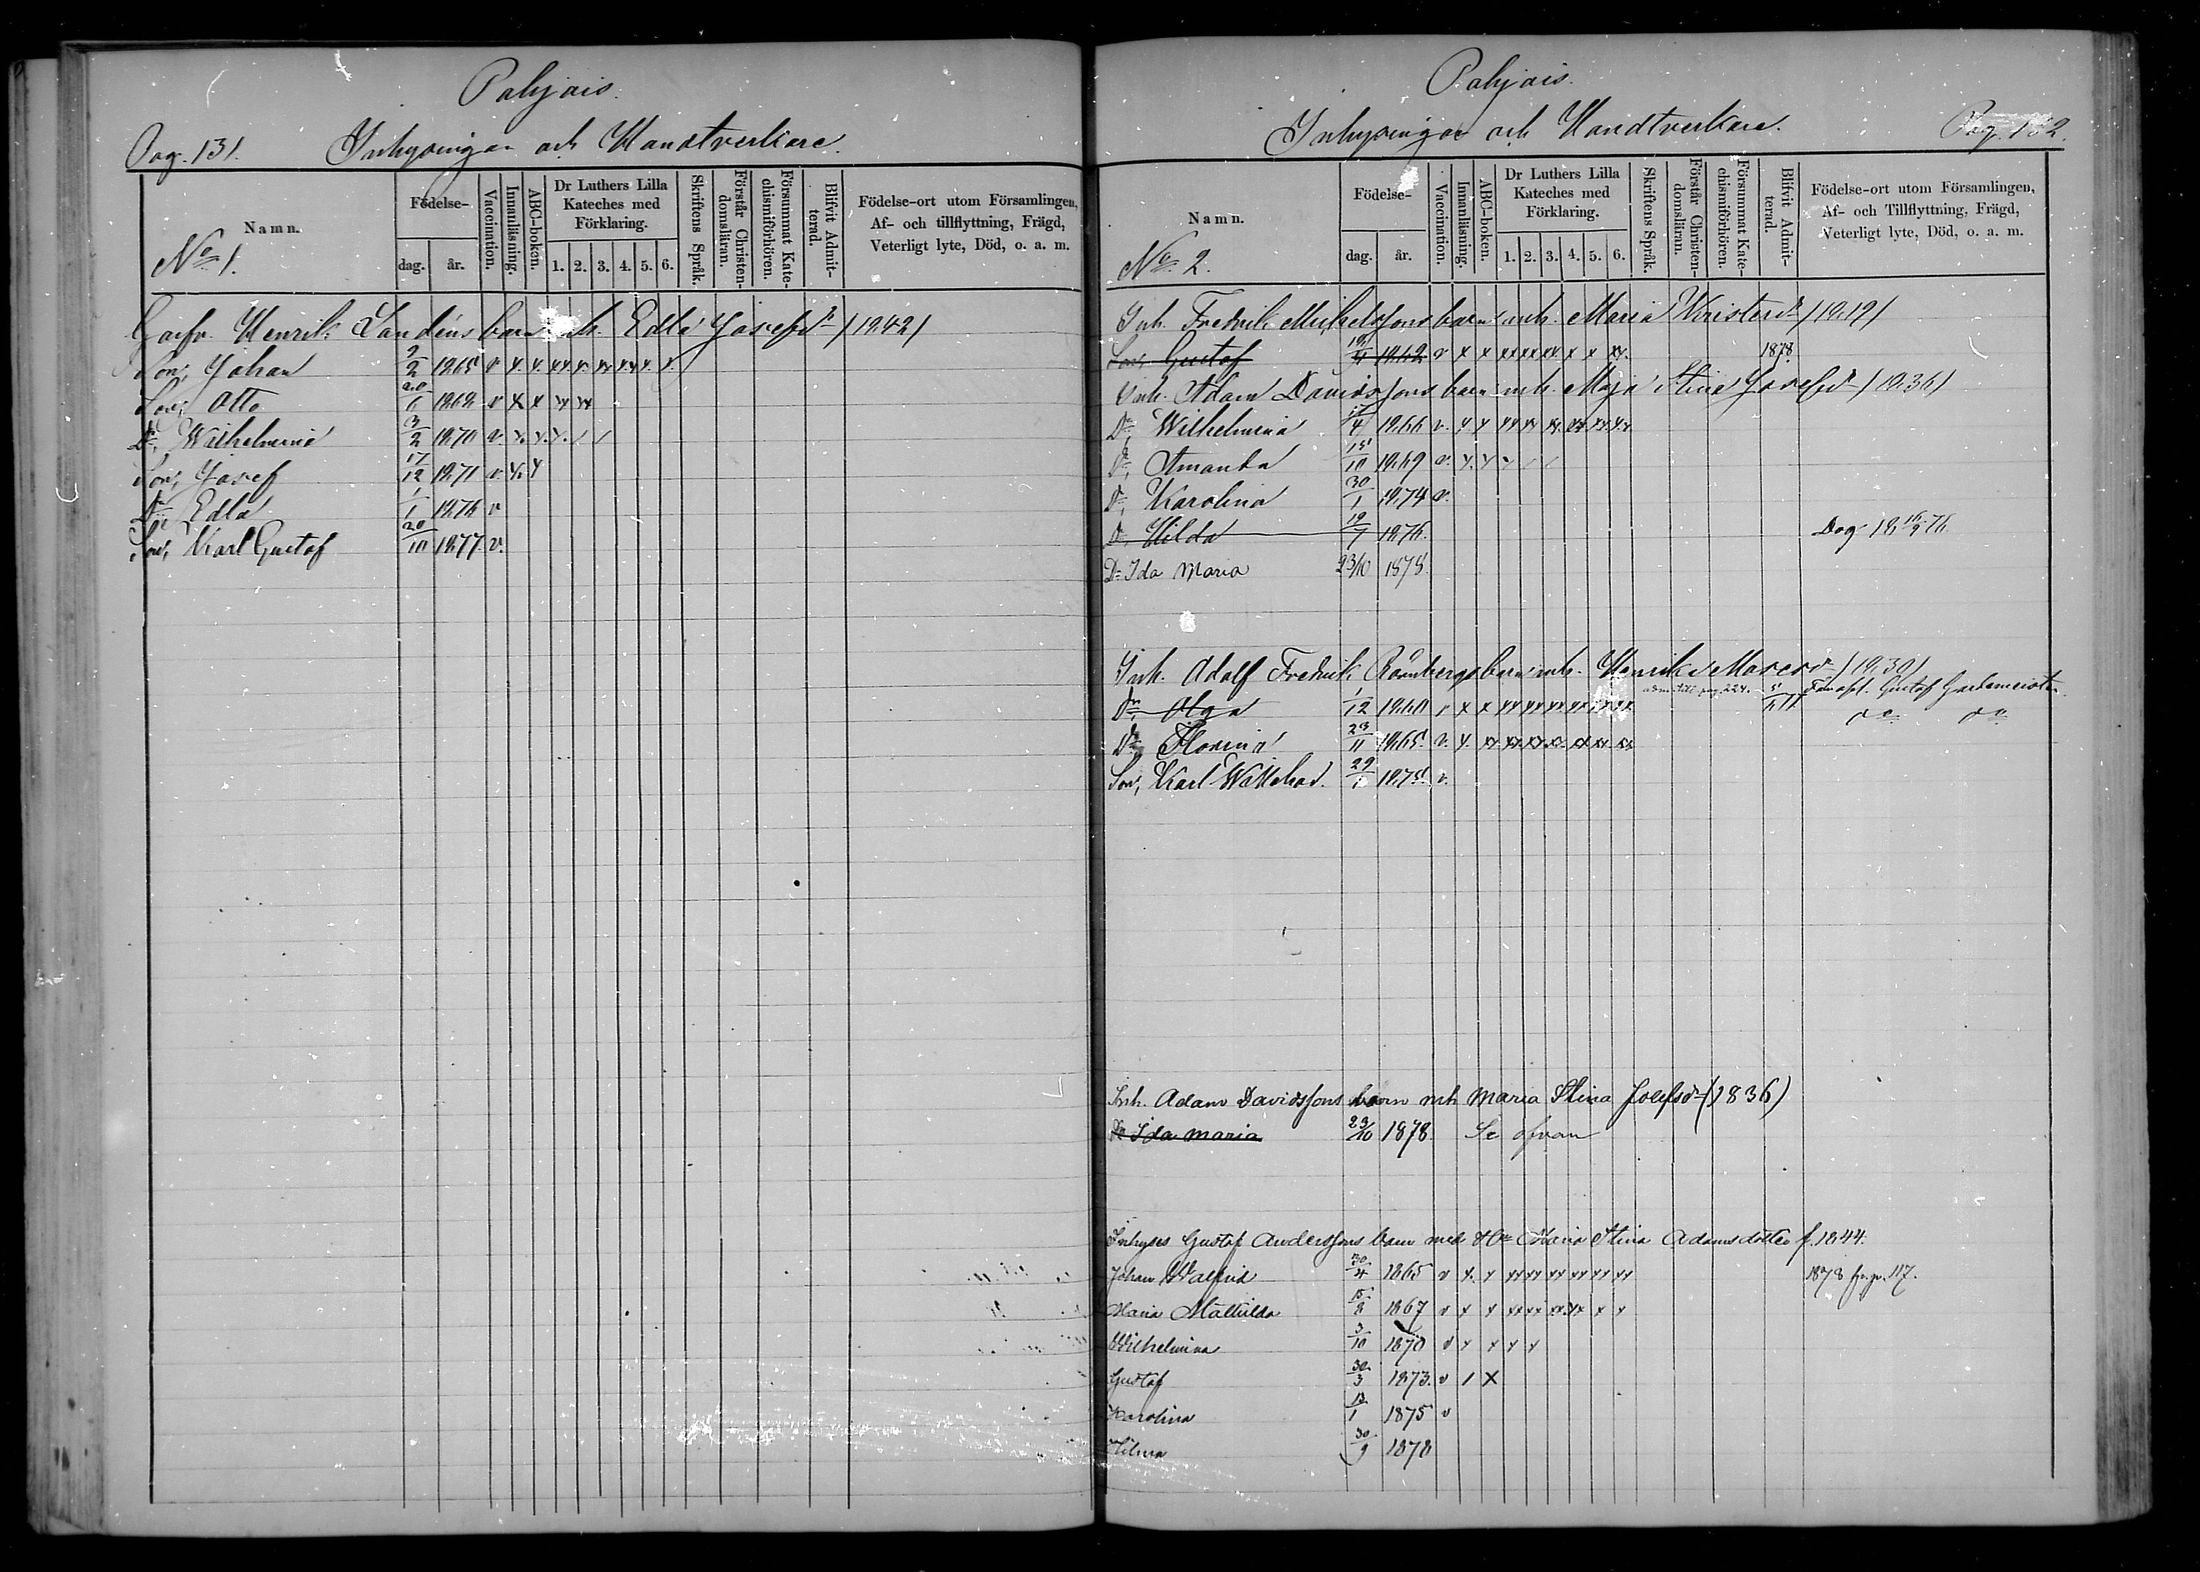 Pahjais.
Pag. 131. Inhysingar och Handtverkare.
Namn. Födelse- dag. år. Vaccination. Innanläsning. ABC-boken. Dr Luthers Lilla Kateches med Förklaring. 1. 2. 3. 4. 5. 6. Skriftens Språk. Förstår Christendomsläran. Försummat Katechismiförhören. Blifvit Admitterad. Födelse-ort utom Församlingen, Af- och tillflyttning, Frägd, Veterligt lyte, Död, o. a. m.
No 1.
Henrik Landéns barn mh. Edla Josefsdr (1842)
Son, Johan 9/2 1865 v x x xx x xx x
Son, Otto 20/6 1868 v x x xx xx
Dr, Wilhelmina 3/2 1870 v. x. x. x. / /
Son, Josef 17/12 1871 v x x
Dr, Edla 1/1 1876 v
Son, Karl Gustaf 20/10 1877 v.
Pahjais.
Inhysingar och Handtverkare. Pag. 132.
Namn. Födelse- dag. år. Vaccination. Innanläsning. ABC-boken. Dr Luthers Lilla Kateches med Förklaring. 1. 2. 3. 4. 5. 6. Skriftens Språk. Förstår Christendomsläran. Försummat Katechismiförhören. Blifvit Admitterad. Födelse-ort utom Församlingen, Af- och Tillflyttning, Frägd, Veterligt lyte, Död, o. a. m.
No 2.
Inh. Fredrik Michelssons barn mh. Maria Kristersdr (1819)
Son, Gustaf 1862 v x x xx xx xx x x xx. 1878
Inh. Adam Davidssons barn mh. Maja Stina Josefsdr (1836)
Dr, Wilhelmina 17/4 1866 v. x x xx xx xx xx xx xx
Dr, Amanda 15/10 1869 v. x. x x / /
Dr, Karolina 30/1 1874 v.
Dr, Hilda 19/7 1876. Dog 18 16/9 76.
Dr Ida Maria 23/10 1878.
Inh. Adolf Fredrik Rönnbergs barn mh. Henrika Mosesdr (1830)
Dr, Olga 1/12 1860 v x x xx xx xx xx xx xx pag 224. Gustaf
Dr, Florina 23/11 1865. v. x. xx xx xx xx xx xx xx
Son, Karl Wilhehad. 29/1 1875. v.
Inh. Adam Davidssons barn mh Maria Stina Josefsdr (1836)
Dr Ida Maria 23/10 1878. Se ofvan
Inhyses Gustaf Anderssons barn med Hu Maria Stina Adamsdotter f. 1844.
Johan Walfrid 30/4 1865 v x. x xx xx xx xx xx xx 1878 fr. p. 117.
Maria Mathilda 15/8 1867 v x x xx xx xx xx x x
Wilhelmina 3/10 1870 v x x x x
Gustaf 30/3 1873. v / X
Karolina 13/1 1875 v
Hilma 30/9 1878